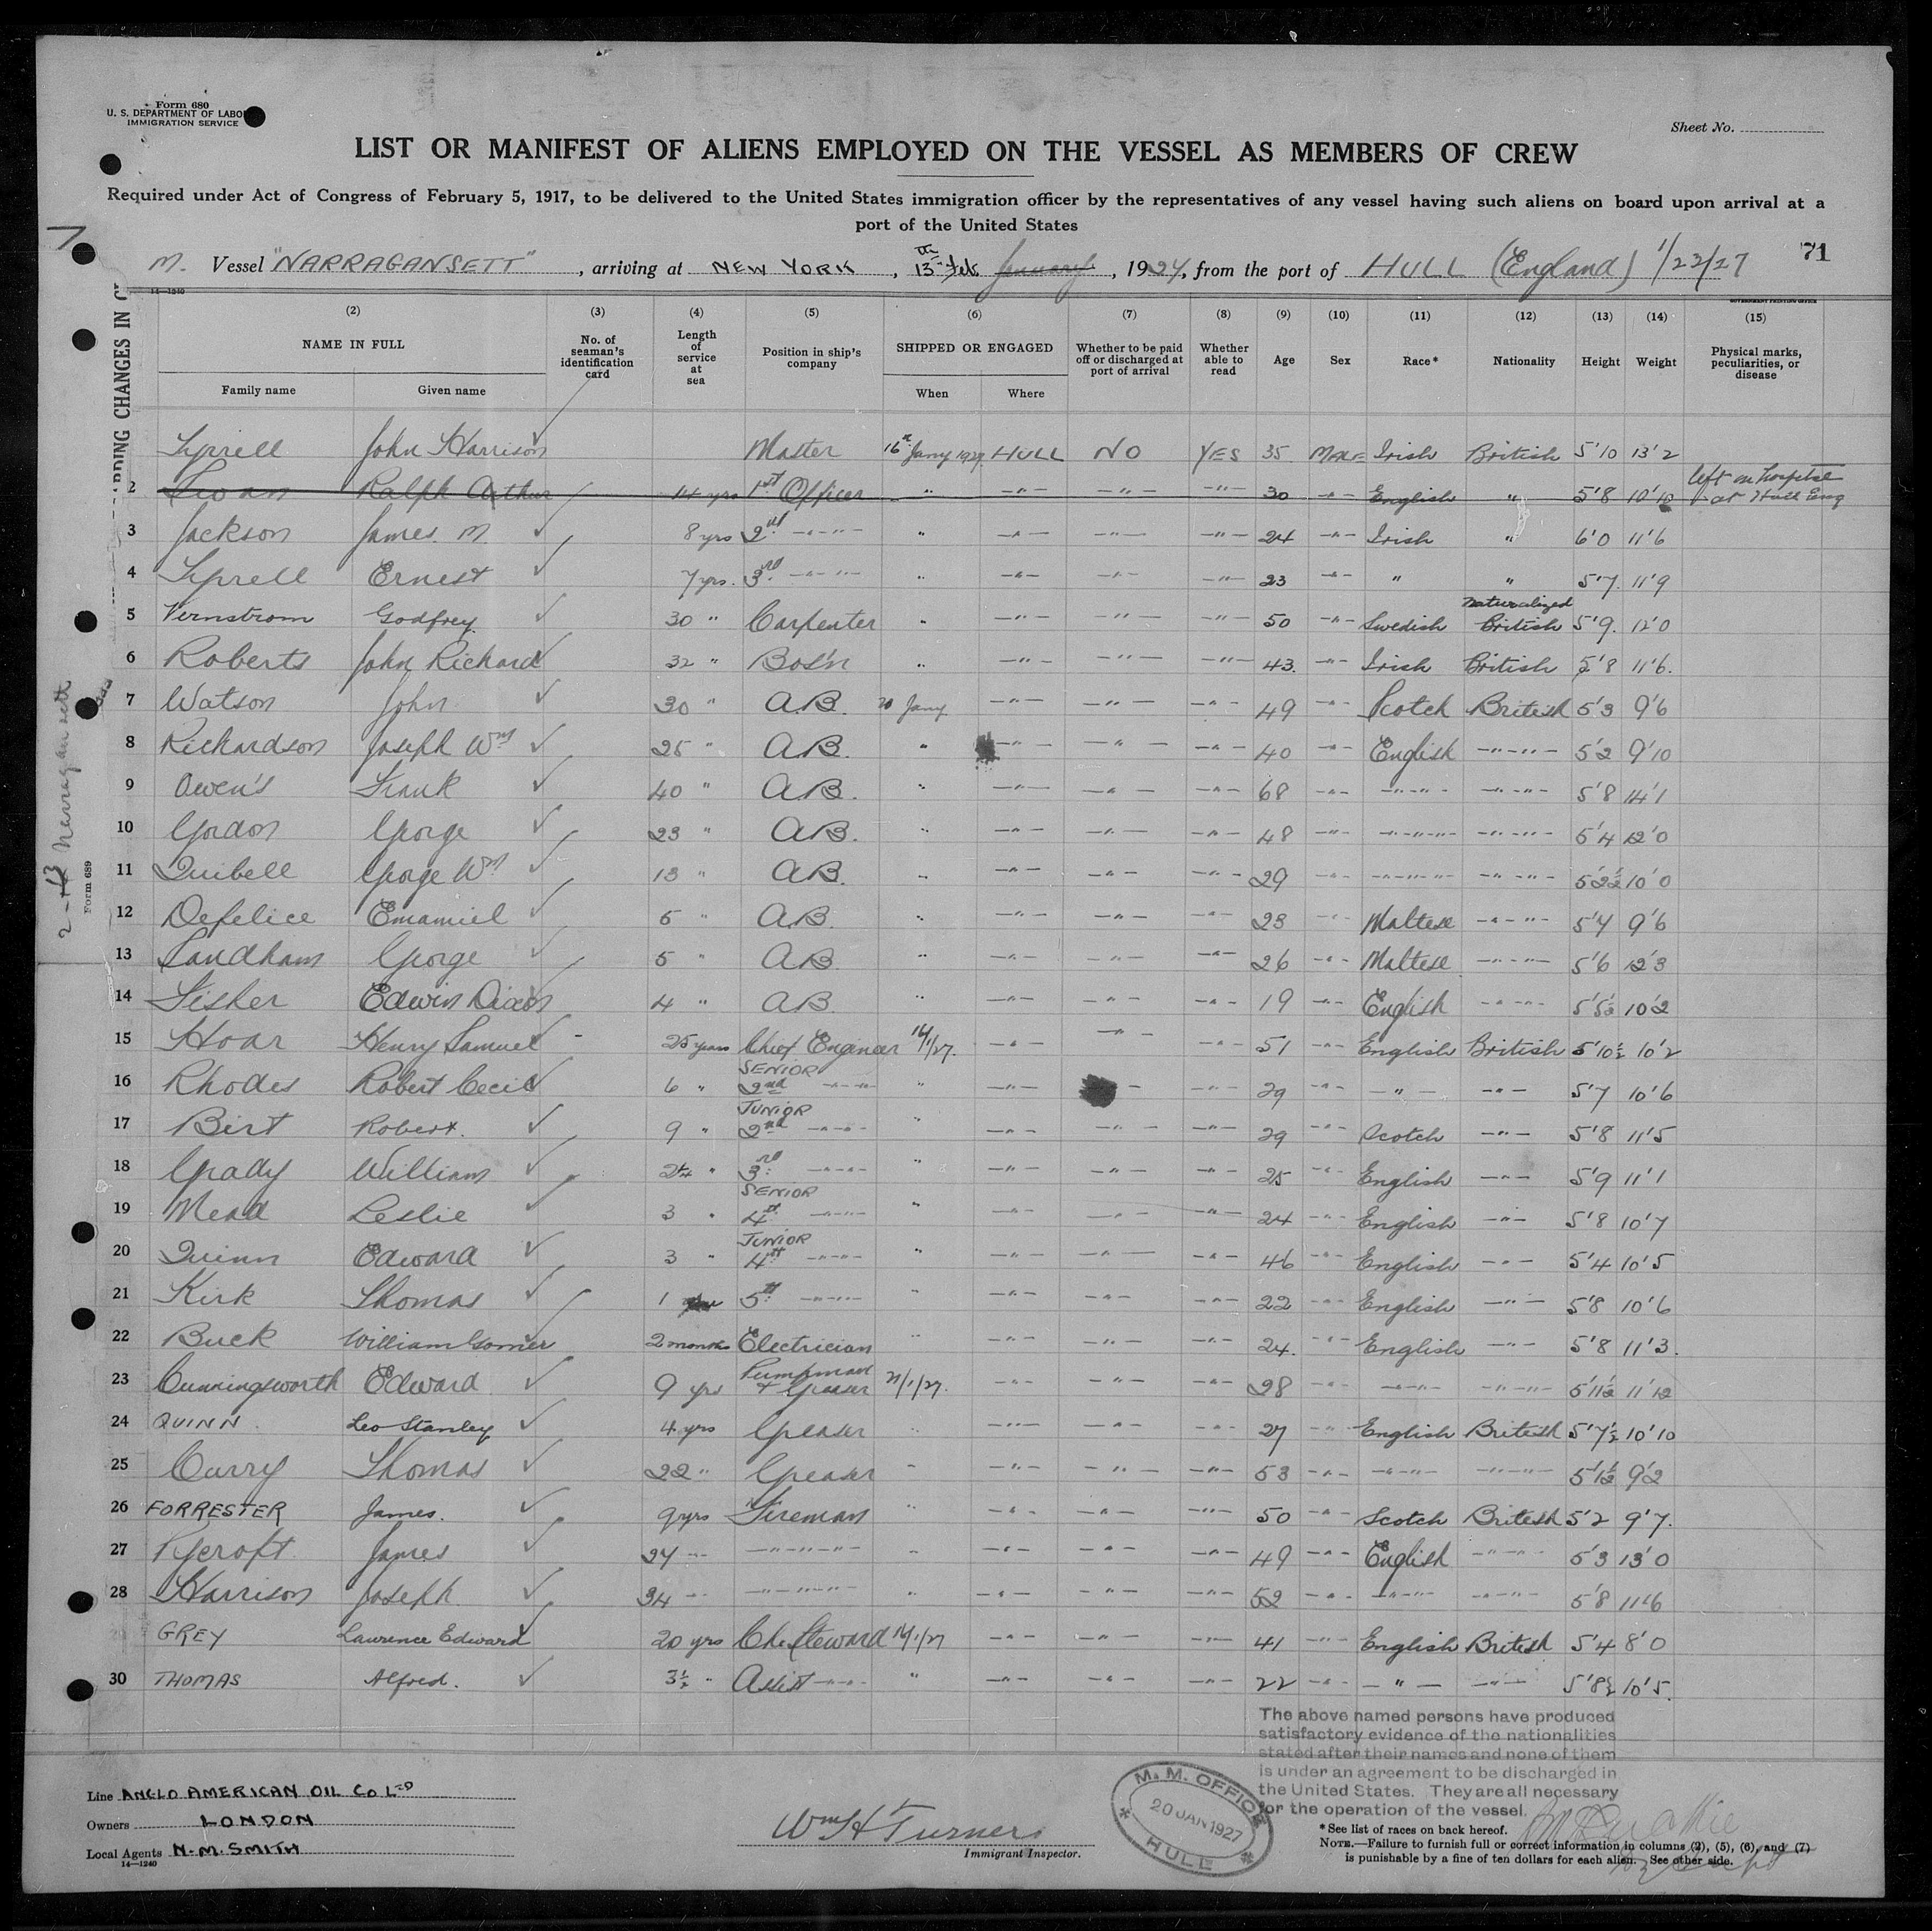 Form 680
U. S. DEPARTMENT OF LABO
IMMIGRATION SERVICE
Sheet No.
LIST OR MANIFEST OF ALIENS EMPLOYED ON THE VESSEL AS MEMBERS OF CREW
Required under Act of Congress of February 5, 1917, to be delivered to the United States immigration officer by the representatives of any vessel having such aliens on board upon arrival at a
port of the United States
M. Vessel "NARRAGANSETT", arriving at NEW YORK, 13th Feb January, 1927, from the port of HULL (England) 1/23/27 71
14—1240 GOVERNMENT PRINTING OFFICE
(2) (3) (4) (5) (6) (7) (8) (9) (10) (11) (12) (13) (14) (15)
NAME IN FULL No. of seaman's identification card Length of service at sea Position in ship's company SHIPPED OR ENGAGED Whether to be paid off or discharged at port of arrival Whether able to read Age Sex Race* Nationality Height Weight Physical marks, peculiarities, or disease
Family name Given name When Where
Tyrrell John Harrison Master 16th Jany 1927 HULL NO YES 35 MALE Irish British 5'10 13'2
2 Swan Ralph Arthur 14 yrs 1st Officer " —"— —"— —"— 30 —"— English " 5'8 10'10 left in hospital at Hull Eng
3 Jackson James M 8 yrs 2nd —"—"— " —"— —"— —"— 24 —"— Irish " 6'0 11'6
4 Tyrrell Ernest 7 yrs. 3rd —"—"— " —"— —"— —"— 23 —"— " " 5'7 11'9
5 Vernstrom Godfrey 30 " Carpenter " —"— —"— —"— 50 —"— Swedish naturalized British 5'9 12'0
6 Roberts John Richard 32 " Bos'n " —"— —"— —"— 43 —"— Irish British 5'8 11'6
7 Watson John 30 " A.B. 20 Jany —"— —"— —"— 49 —"— Scotch British 5'3 9'6
8 Richardson Joseph Wm 25 " A.B. " —"— —"— —"— 40 —"— English —"—"— 5'2 9'10
9 Owen's Frank 40 " A.B. " —"— —"— —"— 68 —"— —"—"— —"—"— 5'8 14'1
10 Gordon George 23 " A.B. " —"— —"— —"— 48 —"— —"—"— —"—"— 5'4 12'0
11 Quibell George Wm 13 " A.B. " —"— —"— —"— 29 —"— —"—"— —"—"— 5'2½ 10'0
12 Defelice Emamiel 5 " A.B. " —"— —"— —"— 23 —"— Maltese —"—"— 5'4 9'6
13 Sandham George 5 " A.B. " —"— —"— —"— 26 —"— Maltese —"—"— 5'6 12'3
14 Fisher Edwin Dixon 4 " A.B. " —"— —"— —"— 19 —"— English —"—"— 5'5½ 10'2
15 Hoar Henry Samuel 25 years Chief Engineer 14/1/27. —"— —"— —"— 51 —"— English British 5'10½ 10'2
16 Rhodes Robert Cecil 6 " SENIOR 2nd —"—"— " —"— — —"— 29 —"— —"— —"— 5'7 10'6
17 Birt Robert. 9 " JUNIOR 2nd —"—"— " —"— —"— —"— 29 —"— Scotch —"— 5'8 11'5
18 Grady William 2½ " 3rd —"—"— " —"— —"— —"— 25 —"— English —"— 5'9 11'1
19 Mead Leslie 3 " SENIOR 4th —"—"— " —"— —"— —"— 24 —"— English —"— 5'8 10'7
20 Quinn Edward 3 " JUNIOR 4th —"—"— " —"— —"— —"— 46 —"— English —"— 5'4 10'5
21 Kirk Thomas 1 5th —"—"— " —"— —"— —"— 22 —"— English —"— 5'8 10'6
22 Buck William Gomer 2 months Electrician " —"— —"— —"— 24. —"— English —"— 5'8 11'3.
23 Cunningsworth Edward 9 yrs Pumpman & Greaser 21/1/27. —"— —"— —"— 28 —"— —"—"— —"—"— 5'11½ 11'12
24 QUINN Leo Stanley 4 yrs Greaser " —"— —"— —"— 27 —"— English British 5'7½ 10'10
25 Curry Thomas 22 " Greaser " —"— —"— —"— 53 —"— —"—"— —"—"— 5'1½ 9'2
26 FORRESTER James. 9 yrs Fireman " —"— —"— —"— 50 —"— Scotch British 5'2 9'7.
27 Rycroft James 27 —"— —"—"—"— " —"— —"— —"— 49 —"— English —"—"— 5'3 13'0
28 Harrison Joseph 34 —"— —"—"—"— " —"— —"— —"— 52 —"— —"—"— —"—"— 5'8 11'6
GREY Lawrence Edward 20 yrs Ch. Steward 14/1/27 —"— —"— —"— 41 —"— English British 5'4 8'0
30 THOMAS Alfred. 3½ " Assist —"—"— " —"— —"— —"— 22 —"— —"— —"— 5'8½ 10'5.
RDING CHANGES IN C
2-13 Narragansett
Form 689
The above named persons have produced
satisfactory evidence of the nationalities
stated after their names and none of them
is under an agreement to be discharged in
the United States. They are all necessary
for the operation of the vessel.
Line ANGLO AMERICAN OIL Co LTD
Owners LONDON
Local Agents N. M. SMITH
14—1240
Wm H Turner
Immigrant Inspector.
M. M. OFFICE
20 JAN 1927
HULL
*See list of races on back hereof.
NOTE.—Failure to furnish full or correct information in columns (2), (5), (6), and (7)
is punishable by a fine of ten dollars for each alien. See other side.